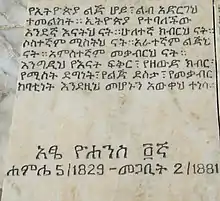 የኢትዮጵያ ልጅ ሆይ፣ ልብ አድርገህ
ተመልከት። ኢትዮጵያ የተባለችው
አንደኛ እናትህ ናት። ሁለተኛ ክብርህ ናት።
ሶስተኛም ሚስትህ ናት። አራተኛም ልጅህ
ናት። አምስተኛም መቃብርህ ናት።
እንግዲህ የእናት ፍቅር፣ የዘውድ ክብር፣
የሚስት ደግነት፣ የልጅ ደስታ፣ የመቃብር
ከባቲነት እንደዚህ መሆኑን አውቀህ ተነሳ።
አፄ ዮሐንስ ፬ኛ
ሐምሌ 5/1829 - መጋቢት 2/1881